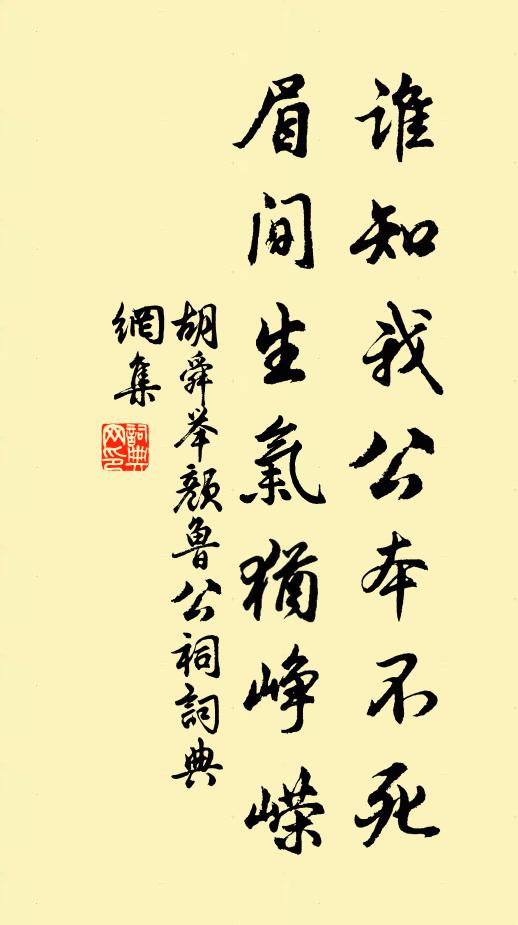 誰知我公本不死
眉间生氣猶峥嵘
胡舜举顏魯公祠詞典
網集
詞典
网印